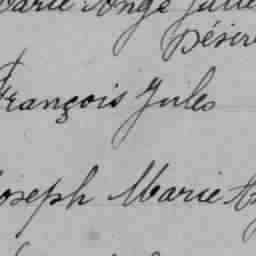 Marie Ange Jule
Désiré
François Jules
Joseph Marie